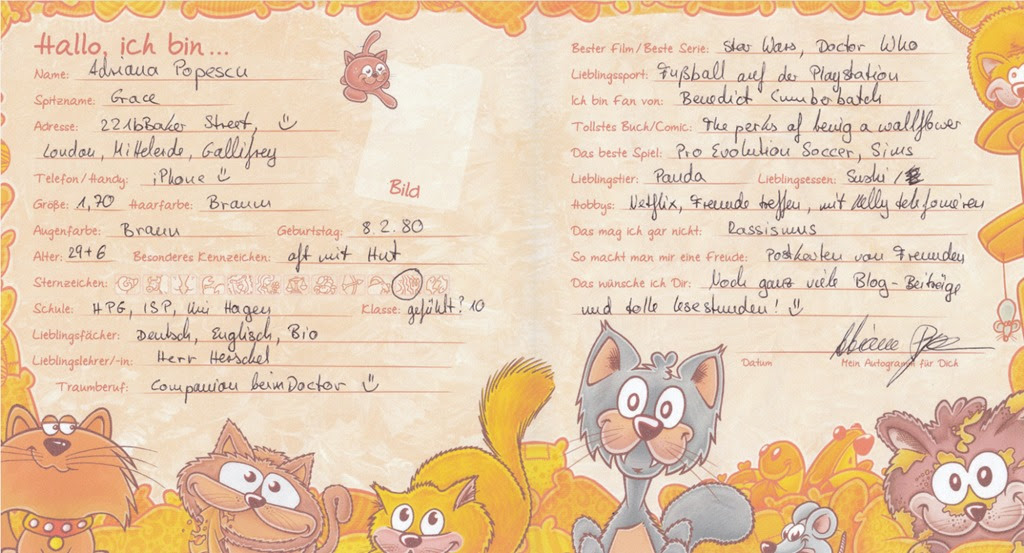 Hallo, ich bin...
Name: Adriana Popescu
Spitzname: Grace
Adresse: 221b Baker Street, ☺
London, Mittelerde, Gallifrey
Telefon/Handy: iPhone ☺
Größe: 1,70 Haarfarbe: Braun
Augenfarbe: Braun Geburtstag: 8.2.80
Alter: 29+6 Besonderes Kennzeichen: oft mit Hut
Sternzeichen:
Schule: HPG, ISP, Uni Hagen Klasse: gefühlt? 10
Lieblingsfächer: Deutsch, Englisch, Bio
Lieblingslehrer/-in: Herr Herschel
Traumberuf: Companion beim Doctor ☺
Bild
Bester Film/Beste Serie: Star Wars, Doctor Who
Lieblingssport: Fußball auf der Playstation
Ich bin Fan von: Benedict Cumberbatch
Tollstes Buch/Comic: The perks of being a wallflower
Das beste Spiel: Pro Evolution Soccer, Sims
Lieblingstier: Panda Lieblingsessen: Sushi /
Hobbys: Netflix, Freunde treffen, mit Kelly telefonieren
Das mag ich gar nicht: Rassismus
So macht man mir eine Freude: Postkarten von Freunden
Das wünsche ich Dir: Noch ganz viele Blog-Beiträge
und tolle Lesestunden! ☺
Datum Mein Autogramm für Dich